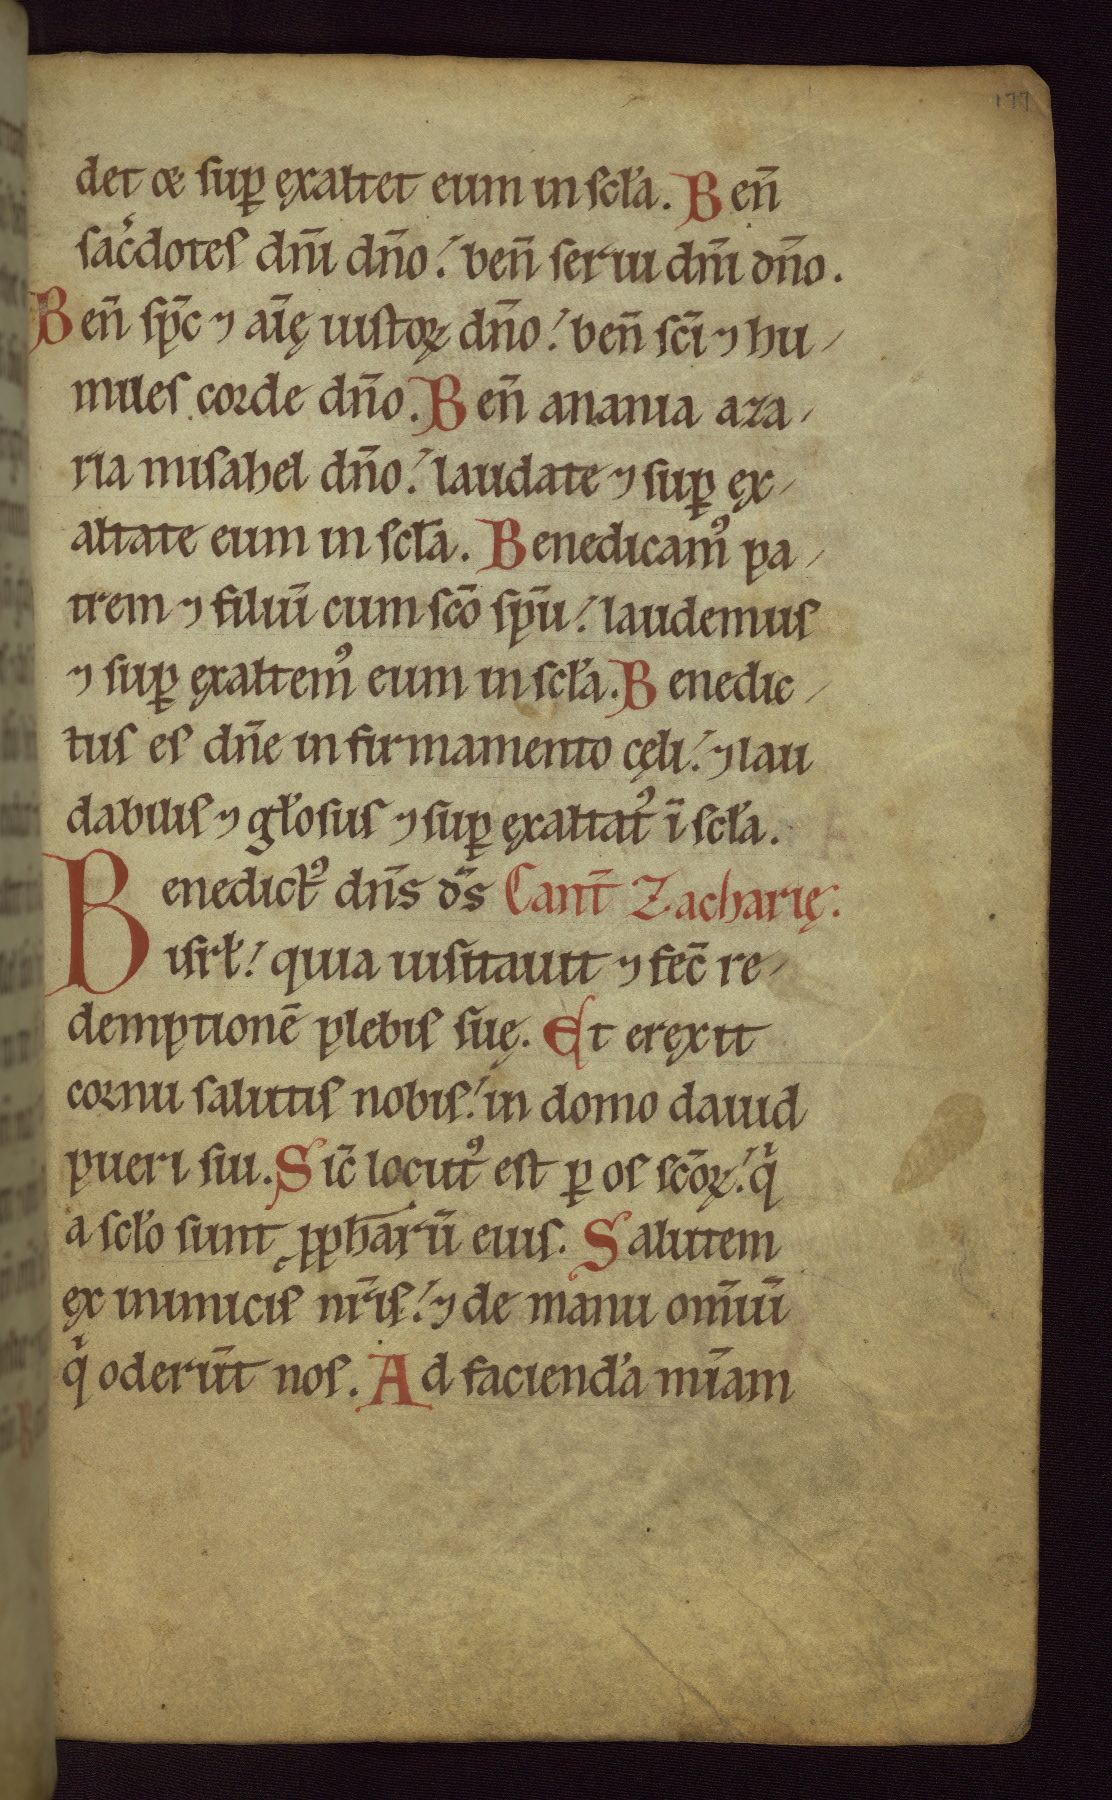 177
det & suꝑ exaltet eum in scl̃a. Ben̄
sac̃dotes dñi dño: ben̄ serui dñi dño.
Ben̄ sp̄c ⁊ aīę iustoꝝ dño: ben̄ sc̄i ⁊ hu-
miles corde dño. Ben̄ anania aza-
ria misahel dño: laudate ⁊ suꝑ ex-
altate eum in scl̃a. Benedicamꝰ pa-
trem ⁊ filiū cum sc̄o sp̄u: laudemus
⁊ suꝑ exaltemꝰ eum in scl̃a. Benedic-
tus es dñe in firmamento cęli: ⁊ lau
dabilis ⁊ gl̃osus ⁊ suꝑ exaltatꝰ ī scl̃a.
Benedictꝰ dñs d̄s Cant̄ Zacharię.
isrl̃: quia uisitauit ⁊ fec̄ re-
demptionē plebis suę. Et erexit
cornu salutis nobis: in domo dauid
pueri sui. Sic̄ locutꝰ est ꝑ os sc̄oꝝ: qͥ
a scl̃o sunt ꝓpharū eius. Salutem
ex inimicis nr̄is: ⁊ de manu omīū
qͥ oderūt nos. Ad faciend̃a mīam